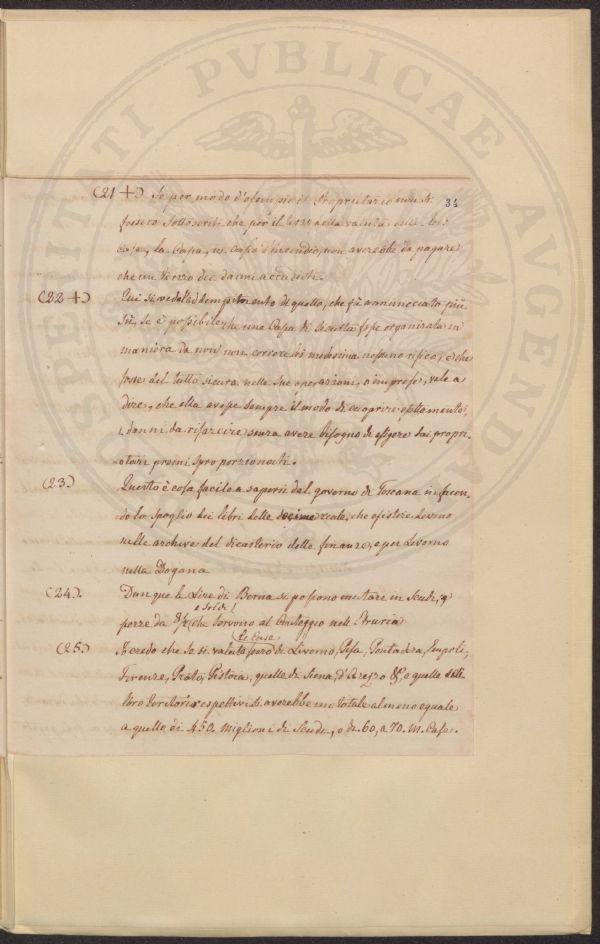 34
(21+) Se per modo d'esempio i Proprietari
fossero sottoscritti che per il terzo della valuta delle loro
case, la Cassa, in caso d'incendio, non averebbe da pagare
che un terzo dei danni accaduti.
(22+) Qui si vede l'adempimento di quello, che fù annunciato più
sù, se è possibile, che una Cassa di sicurtà fosse organizata in
maniera da non non correre lei medesima nessuno risico, e che
fosse del tutto sicura nelle sue operazioni, o imprese, vale a
dire, che ella avesse sempre il modo di cuoprire esattamente
i danni da rifarcire senza avere bisogno di esigere dai propri-
etari premi sproporzionati.
(23.) Questo è cosa facile a sapersi dal governo di Toscana in facen-
do lo spoglio dei libri delle decime reale, che esistere devono
nelle archive del dicasterio delle finanze, e per Livorno
nella Dogana
(24.) Dunque le Lire di Berna si possono mutare in Scudi, o
e Soldi
pezze da 8/r che servono al Conteggio nell'Etruria
le Case
(25.) Io credo che se si valutassero di Livorno, Pisa, Pontadera, Empoli,
Firenze, Prato, Pistoia, quelle di Siena, d'Arezzo &c. e quelle delli
loro territori respettivi si averebbe un totale almeno eguale
a quello di 450. Miglioni di Scudi, o di 60, a 70. m. Case.
PVBLICAE
AVGENDA